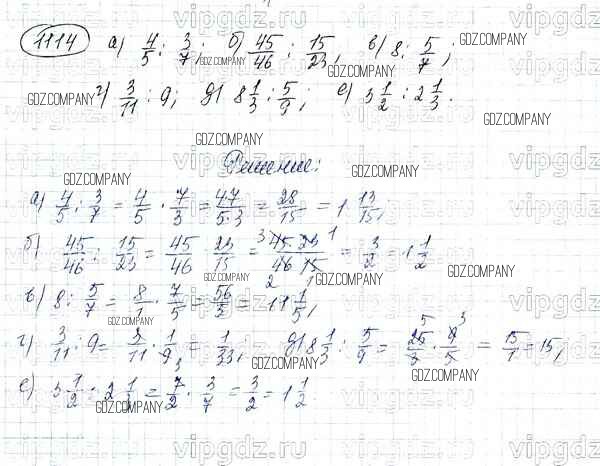 1114 а) 4/5 : 3/7; б) 45/46 : 15/23, в) 8 : 5/7;
г) 3/11 : 9; д) 8 1/3 : 5/9; е) 3 1/2 : 2 1/3.
Решение:
а) 4/5 : 3/7 = 4/5 · 7/3 = 47/5·3 = 28/15 = 1 13/15,
б) 45/46 : 15/23 = 45/46 · 23/15 = 45·23/46·15 = 3/2 = 1 1/2
в) 8 : 5/7 = 8/1 · 7/5 = 56/5 = 11 1/5,
г) 3/11 : 9 = 3/11 · 1/9 = 1/33, д) 8 1/3 : 5/9 = 25/3 · 9/5 = 15/1 = 15,
е) 3 1/2 : 2 1/3 = 7/2 · 3/7 = 3/2 = 1 1/2.
vipgdz.ru
GDZ.COMPANY